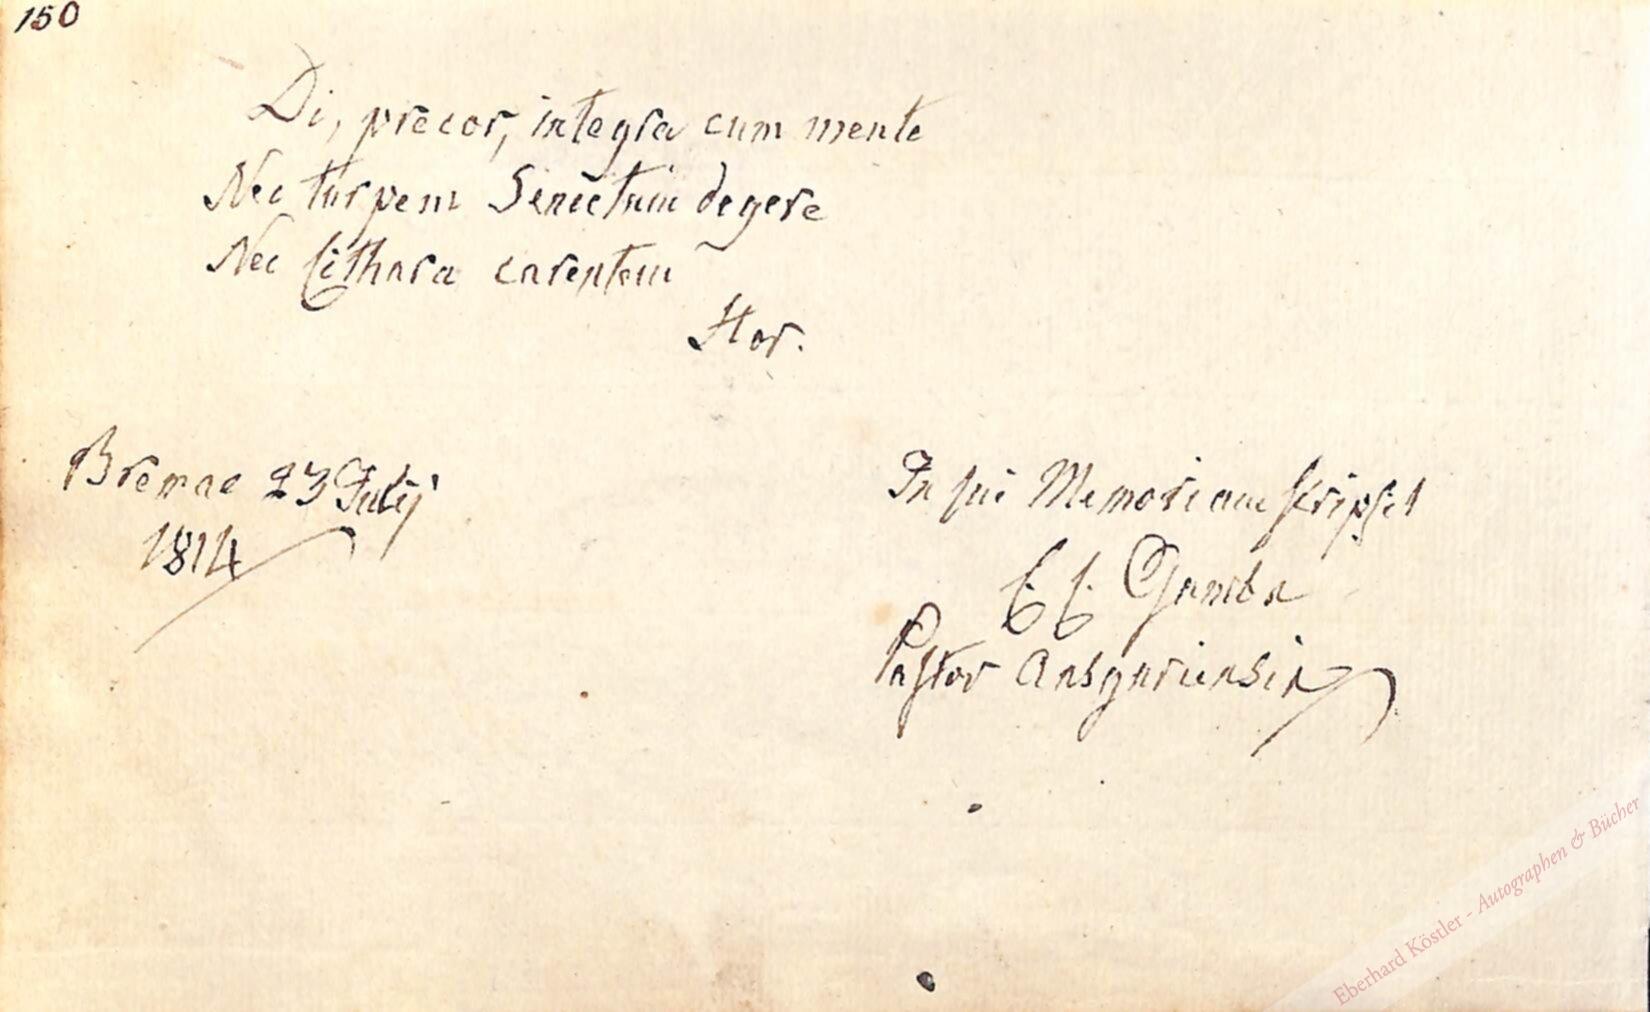 150
Di, precor, integra cum mente
Nec turpem Senectam degere
Nec Cithara carentem
Hor.
Bremae 23 Julij
1814
In sui Memoriam scripsit
C C Gambs
Pastor Ansgariensis
Eberhard Köstler - Autographen & Bücher